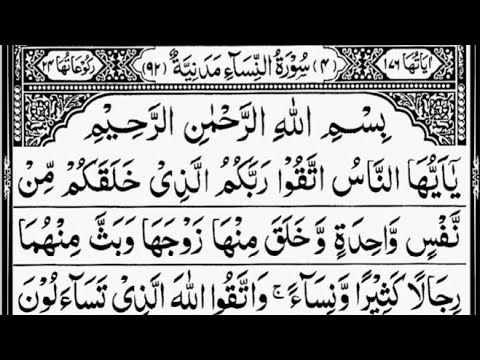 اٰیَاتُهَا ١٧٦ (٤) سُوْرَةُ النِّسَآءِ مَدَنِيَّةٌ (٩٢) رُكُوْعَاتُهَا ٢٤
بِسْمِ اللهِ الرَّحْمٰنِ الرَّحِيْمِ
يٰٓاَيُّهَا النَّاسُ اتَّقُوْا رَبَّكُمُ الَّذِيْ خَلَقَكُمْ مِّنْ
نَّفْسٍ وَّاحِدَةٍ وَّخَلَقَ مِنْهَا زَوْجَهَا وَبَثَّ مِنْهُمَا
رِجَالًا كَثِيْرًا وَّنِسَآءً ۚ وَاتَّقُوا اللهَ الَّذِيْ تَسَآءَلُوْنَ